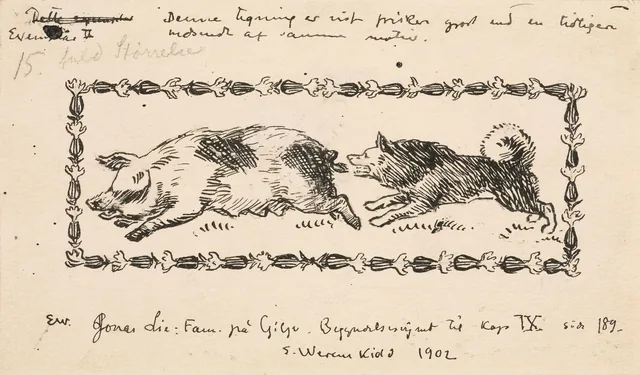 Dette exemplar Denne tegning er vist friskere gjort end en tidligere
Exemplar II indsendt af samme motiv.
15. fuld Størrelse
Ew. Jonas Lie: Fam. på Gilje. Begyndelsesvignet til Kap IX side 189-
E. Werenskiold 1902